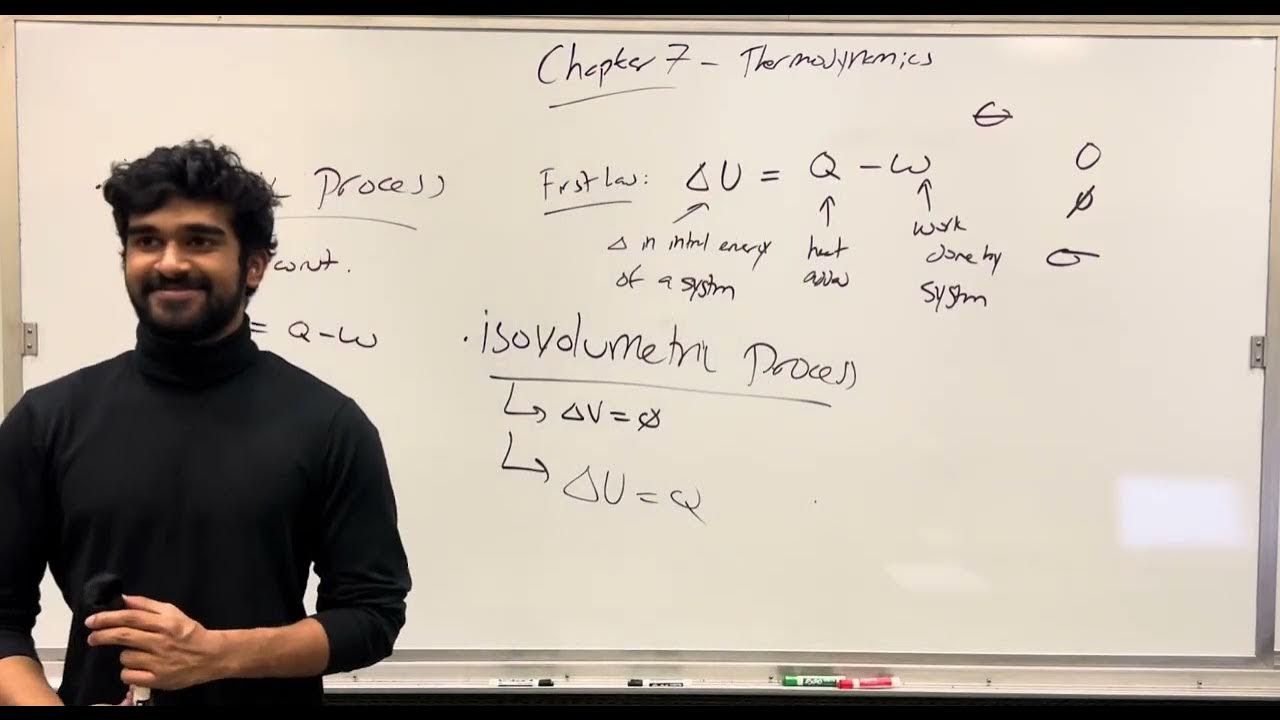 Chapter 7 – Thermodynamics
First Law: ΔU = Q – W
Δ in intrl energy
of a systm
heat
work
done by
systm
Process
cont.
= Q – W
• isovolumetric Process
↳ ΔV = ∅
↳ ΔU = Q